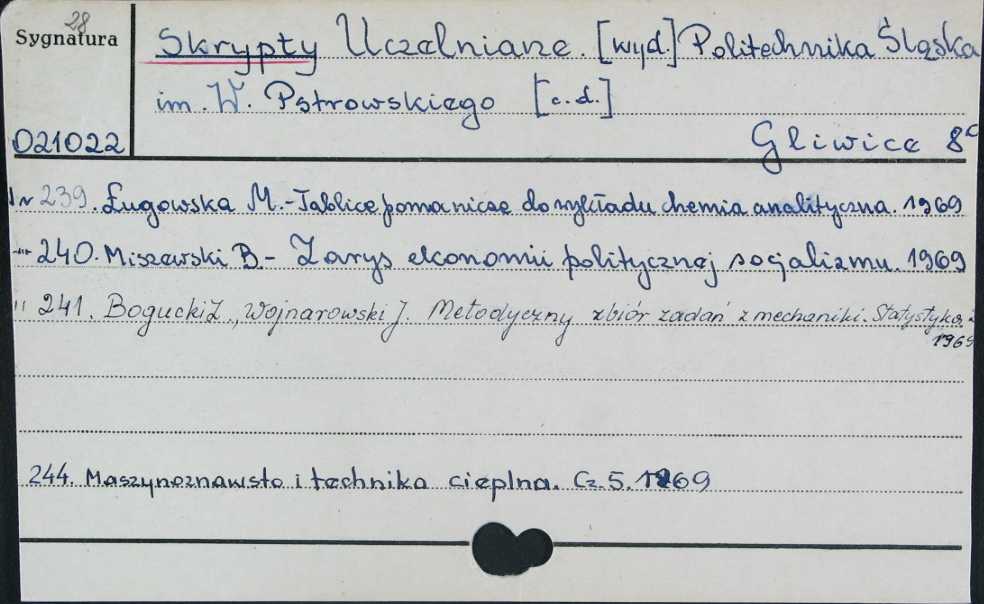 28
Sygnatura
Skrypty Uczelniane. [wyd.] Politechnika Śląska
im. W. Pstrowskiego [c.d.]
021022
Gliwice 8°
Nr 239. Ługowska M.-Tablice pomocnicze do wykładu chemia analityczna. 1969
-"- 240. Miszewski B.- Zarys ekonomii politycznej socjalizmu. 1969
" 241. Bogucki Z., Wojnarowski J. Metodyczny zbiór zadań z mechaniki. Statystyka
1969
244. Maszynoznawsto i technika cieplna. Cz. 5. 1969